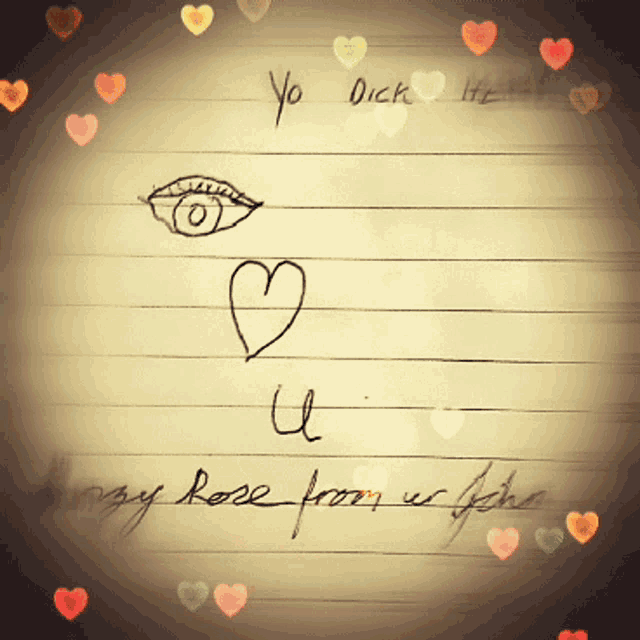 Yo Dick
U
Rose from ur John